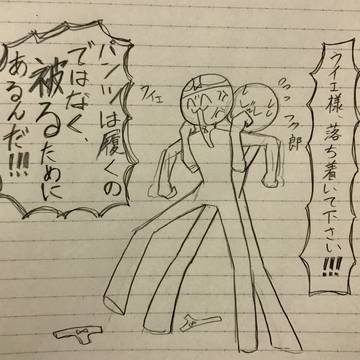 ウイエ様、落ち着いて下さい!!!
ウイエ
パンツは履くの
ではなく、
被るために
あるんだ!!!